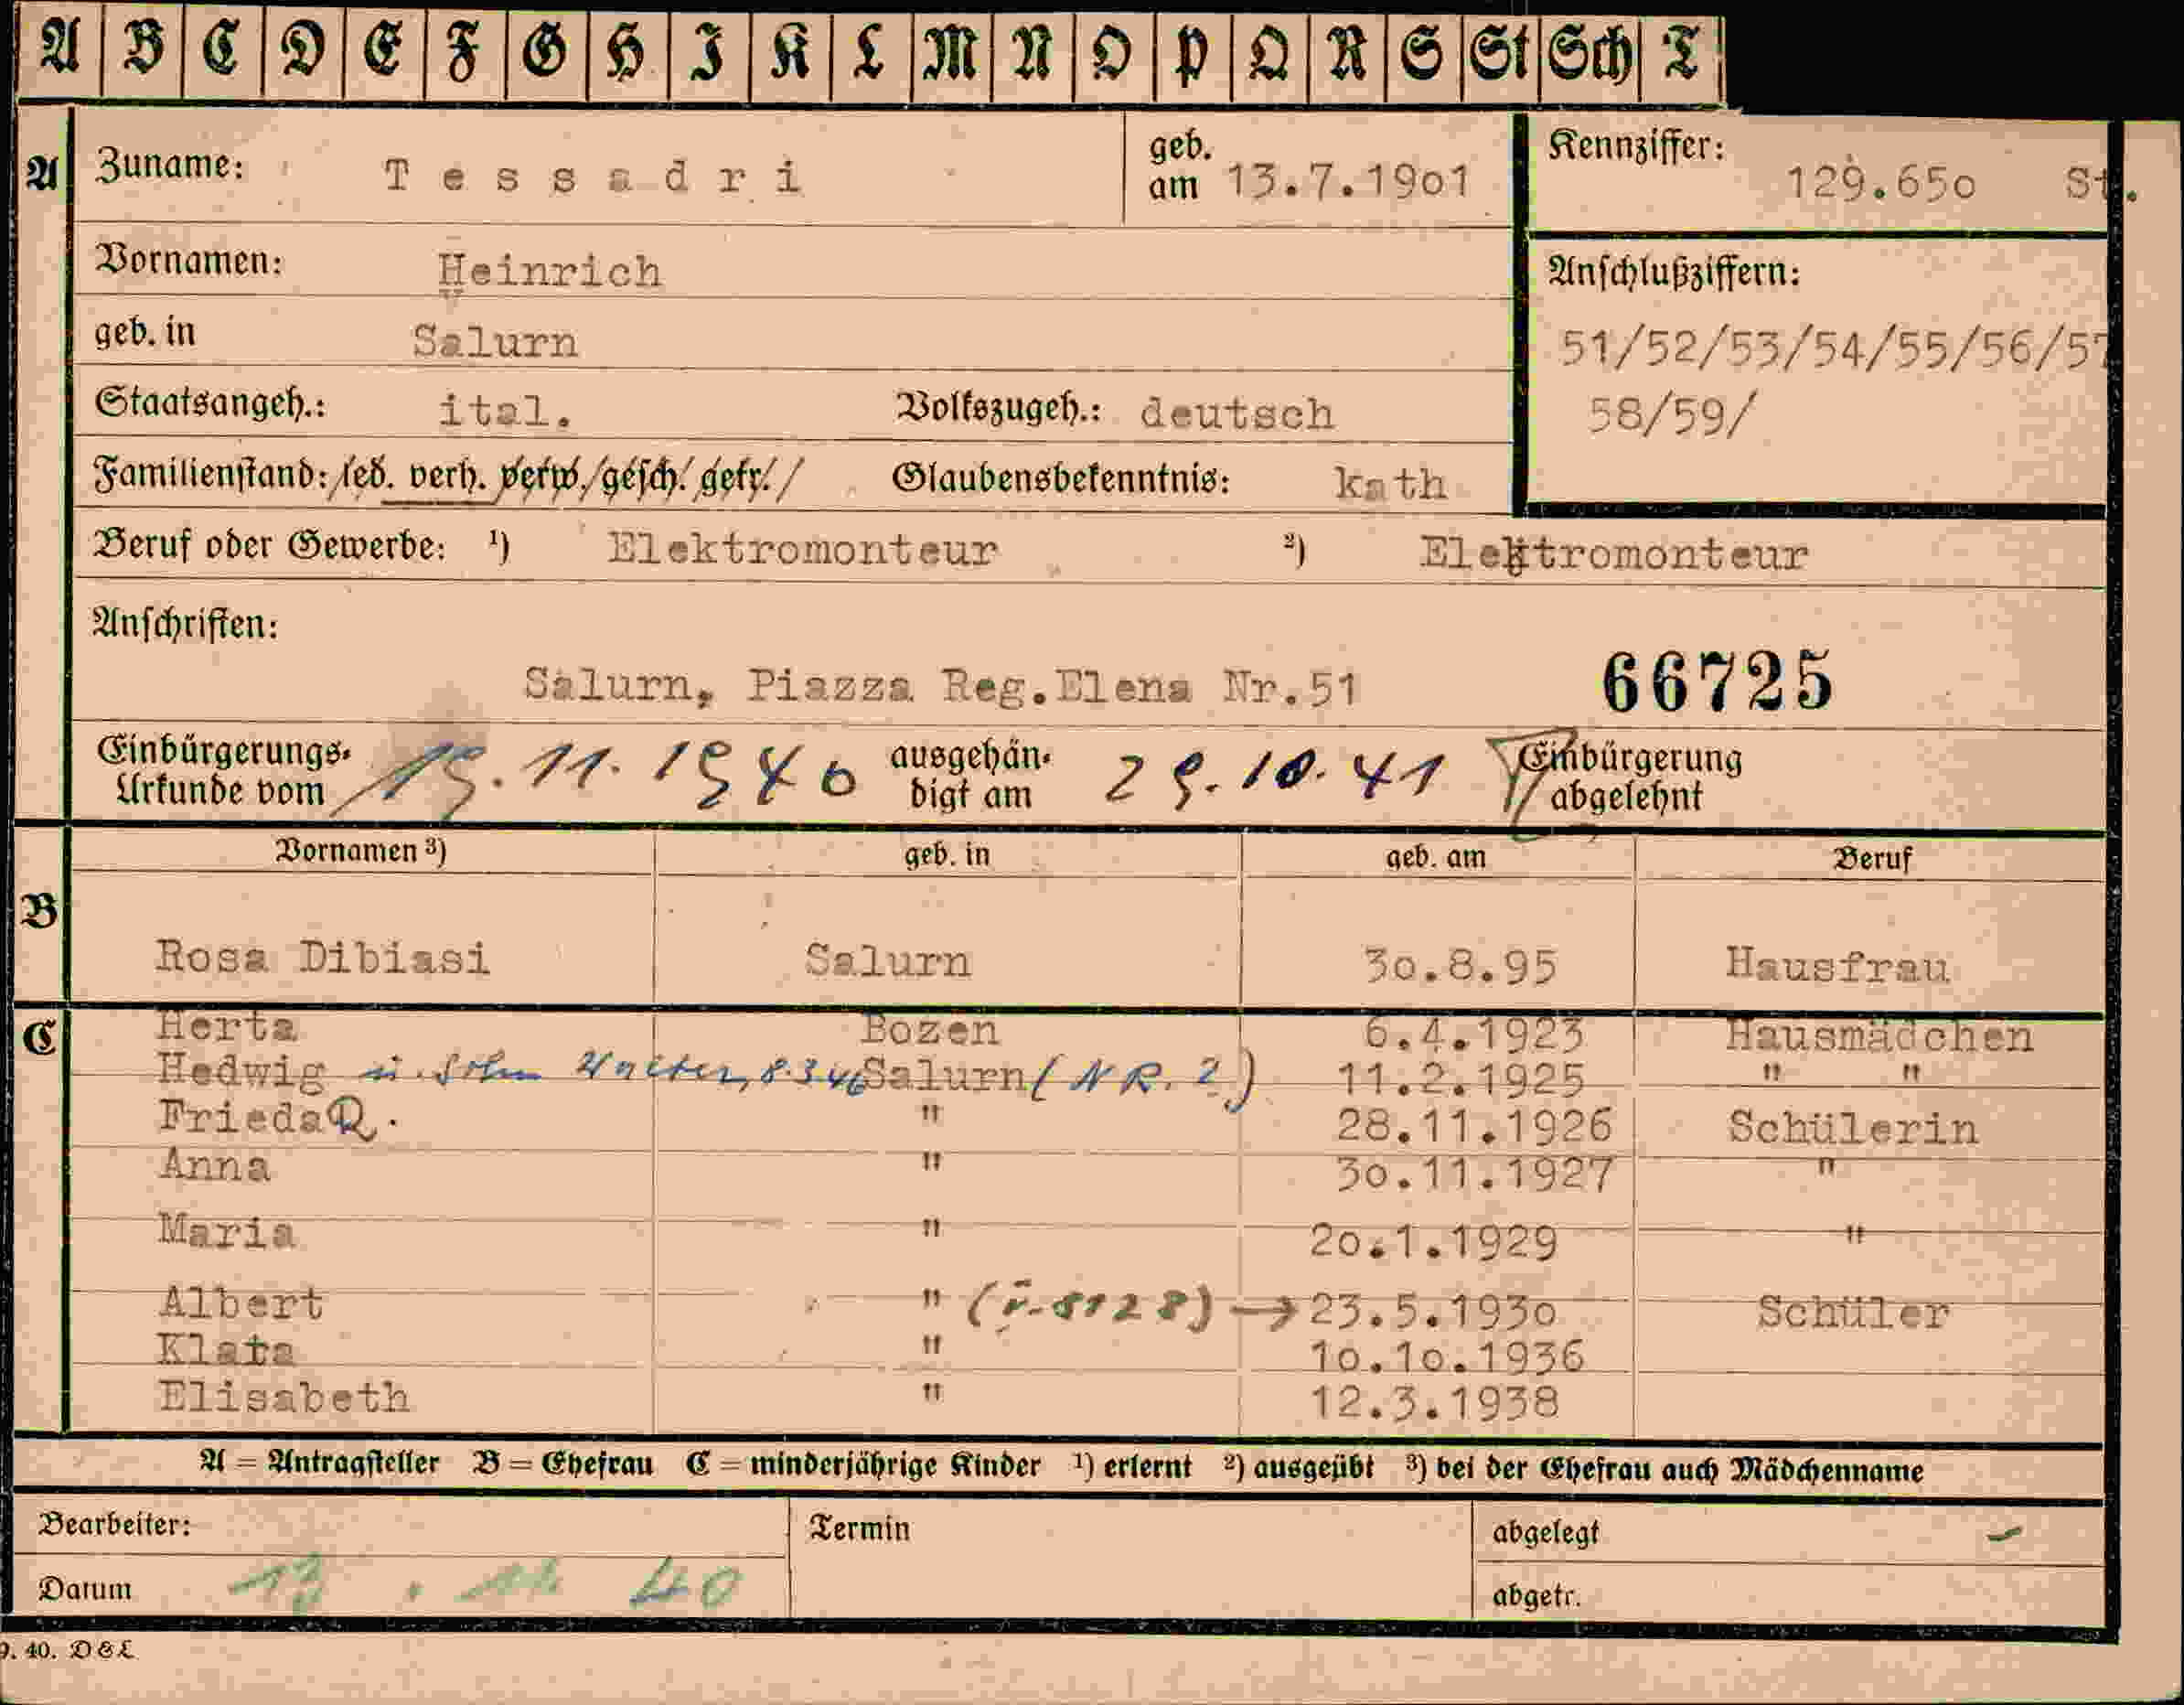 A B C D E F G H I K L M N O P Q R S St Sch T
A Zuname: Tessadri geb. am 13.7.1901 Kennziffer: 129.650 St.
Vornamen: Heinrich Anschlußziffern:
geb. in Salurn 51/52/53/54/55/56/57
Staatsangeh.: ital. Volkszugeh.: deutsch 58/59/
Familienstand: led. verh. verw. gesch. getr. Glaubensbekenntnis: kath
Beruf oder Gewerbe: ¹) Elektromonteur ²) Elektromonteur
Anschriften:
Salurn, Piazza Reg.Elena Nr.51 66725
Einbürgerungs-Urkunde vom 19.11.1940 ausgehändigt am 29.10.41 Einbürgerung abgelehnt
Vornamen ³) geb. in geb. am Beruf
B
Rosa Dibiasi Salurn 30.8.95 Hausfrau
C Herta Bozen 6.4.1923 Hausmädchen
Hedwig u. Sohn Walter, 8.3.46 Salurn (NR. ?) 11.2.1925 " "
Frieda R. " 28.11.1926 Schülerin
Anna " 30.11.1927 "
Maria " 20.1.1929 "
Albert " → 23.5.1930 Schüler
Klara " 10.10.1936
Elisabeth " 12.3.1938
A = Antragsteller B = Ehefrau C = minderjährige Kinder ¹) erlernt ²) ausgeübt ³) bei der Ehefrau auch Mädchenname
Bearbeiter: Termin abgelegt
Datum 40 abgetr.
9. 40. D & L